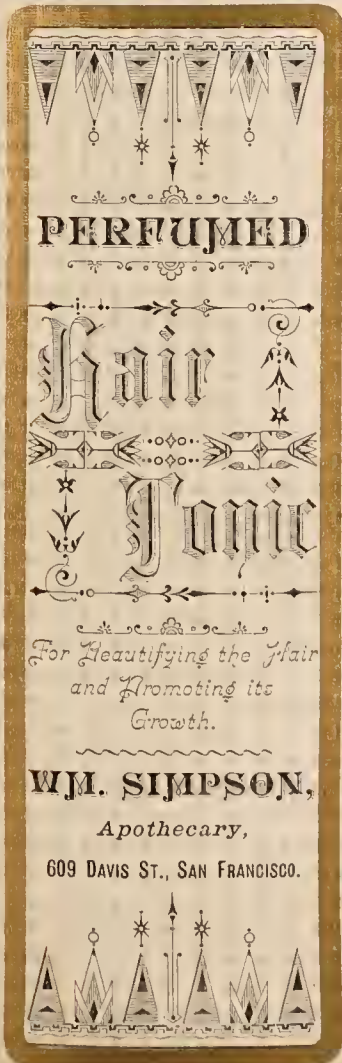 PERFUMED
Hair
Tonic
For Beautifying the Hair
and Promoting its
Growth.
WM. SIMPSON,
Apothecary,
609 DAVIS ST., SAN FRANCISCO.